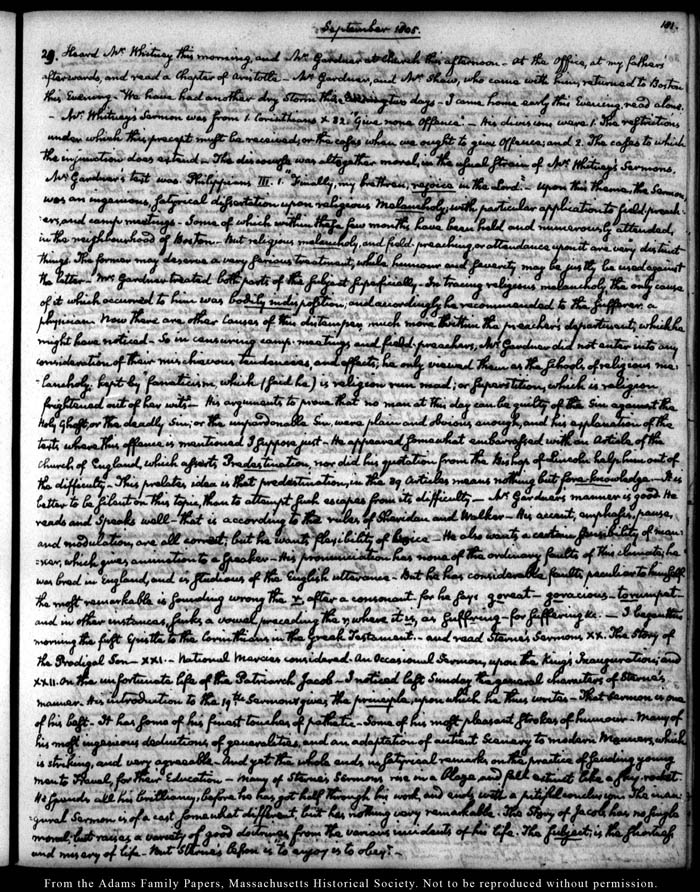 September 1805.
181.
29. Heard Mr. Whitney this morning, and Mr. Gardner at Church this afternoon - At the Office, at my fathers
afterwards, and read a Chapter of Aristotle - Mr. Gardner, and Mr. Shaw, who came with him, returned to Boston
this Evening - We have had another dry storm these two days - I came home early this Evening, read alone.
- Mr. Whitney's Sermon was from 1. Corinthians X 32. "Give none Offence." - His divisions were 1. The restrictions
under which this precept must be received; or the cases when we ought to give Offence; and 2. The cases to which
the injunction does extend - The discourse was altogether moral; in the usual strain of Mr. Whitney's Sermons.
Mr. Gardner's text was Philippians III. 1. "Finally, my brethren, rejoice in the Lord." - Upon this theme, the Sermon
was an ingenious, satyrical dissertation upon religious Melancholy, with particular application to field-preach-
ers, and camp-meetings - Some of which within these few months have been held and numerously attended,
in the neighbourhood of Boston - But religious melancholy, and field-preaching, or attendance upon it are very distinct
things. The former may deserve a very serious treatment, while humour and severity may be justly be used against
the latter - Mr. Gardner treated both parts of the subject superficially - In tracing religious melancholy, the only cause
of it which occurred to him was bodily indisposition; and accordingly he recommended to the sufferer a
physician - Now there are other causes of this distemper, much more within the preacher's department, which he
might have noticed - So in censuring camp-meetings and field-preachers, Mr. Gardner did not enter into any
consideration of their mischievous tendencies, and effects; he only viewed them as the schools of religious me-
lancholy; kept by fanaticism, which (said he) is religion run mad; or superstition, which is religion
frightened out of her wits - His arguments to prove that no man at this day can be guilty of the Sin against the
Holy Ghost, or the deadly Sin, or the unpardonable Sin, were plain and obvious enough, and his explanation of the
texts where this offence is mentioned I suppose just - He appeared somewhat embarrassed with an Article of the
Church of England, which asserts Predestination, nor did his quotation from the Bishop of Lincoln help him out of
the difficulty - This prelate's idea is that predestination, in the 39 Articles means nothing but fore-knowledge - It is
better to be silent on this topic, than to attempt such escapes from its difficulty - Mr. Gardner's manner is good He
reads and speaks well - that is according to the rules of Sheridan and Walker - His accent, emphasis, pause,
and modulation, are all correct; but he wants flexibility of voice - He also wants a certain sensibility of man-
ner, which gives animation to a speaker - His pronunciation has none of the ordinary faults of this climate; he
was bred in England, and is studious of the English utterance - But he has considerable faults peculiar to himself
the most remarkable is sounding wrong the r, after a consonant for he says goreat - goracious - torumpet -
and in other instances, sinks a vowel preceding the r, where it is, as suffring - for suffering &c. - I began this
morning the first Epistle to the Corinthians in the Greek Testament - and read Sterne's Sermons XX. The Story of
the Prodigal Son - XXI - National Mercies considered. An Occasional Sermon, upon the King's Inauguration; and
XXII. On the unfortunate life of the Patriarch Jacob - I noticed last Sunday the general characters of Sterne's
manner. His introduction to the 19th Sermon gives the principle, upon which he thus writes - That Sermon is one
of his best - It has some of his finest touches of pathetic - Some of his most pleasant strokes of humour - Many of
his most ingenious deductions of generalities, and an adaptation of antient Scenary to modern Manners, which
is striking, and very agreeable - And yet the whole ends in satyrical remarks on the practice of sending young
men to travel, for their Education - Many of Sterne's Sermons rise in a blaze, and fall extinct like a sky-rocket
He spends all his brilliancy, before he has got half through his work, and ends with a pitiful conclusion. The inau-
gural Sermon is of a cast somewhat different, but has nothing very remarkable. The Story of Jacob has no single
moral; but raises a variety of good doctrines from the various incidents of his life. The subject, is the shortness
and misery of life - But Sterne's lesson is "to enjoy is to obey." -
From the Adams Family Papers, Massachusetts Historical Society. Not to be reproduced without permission.